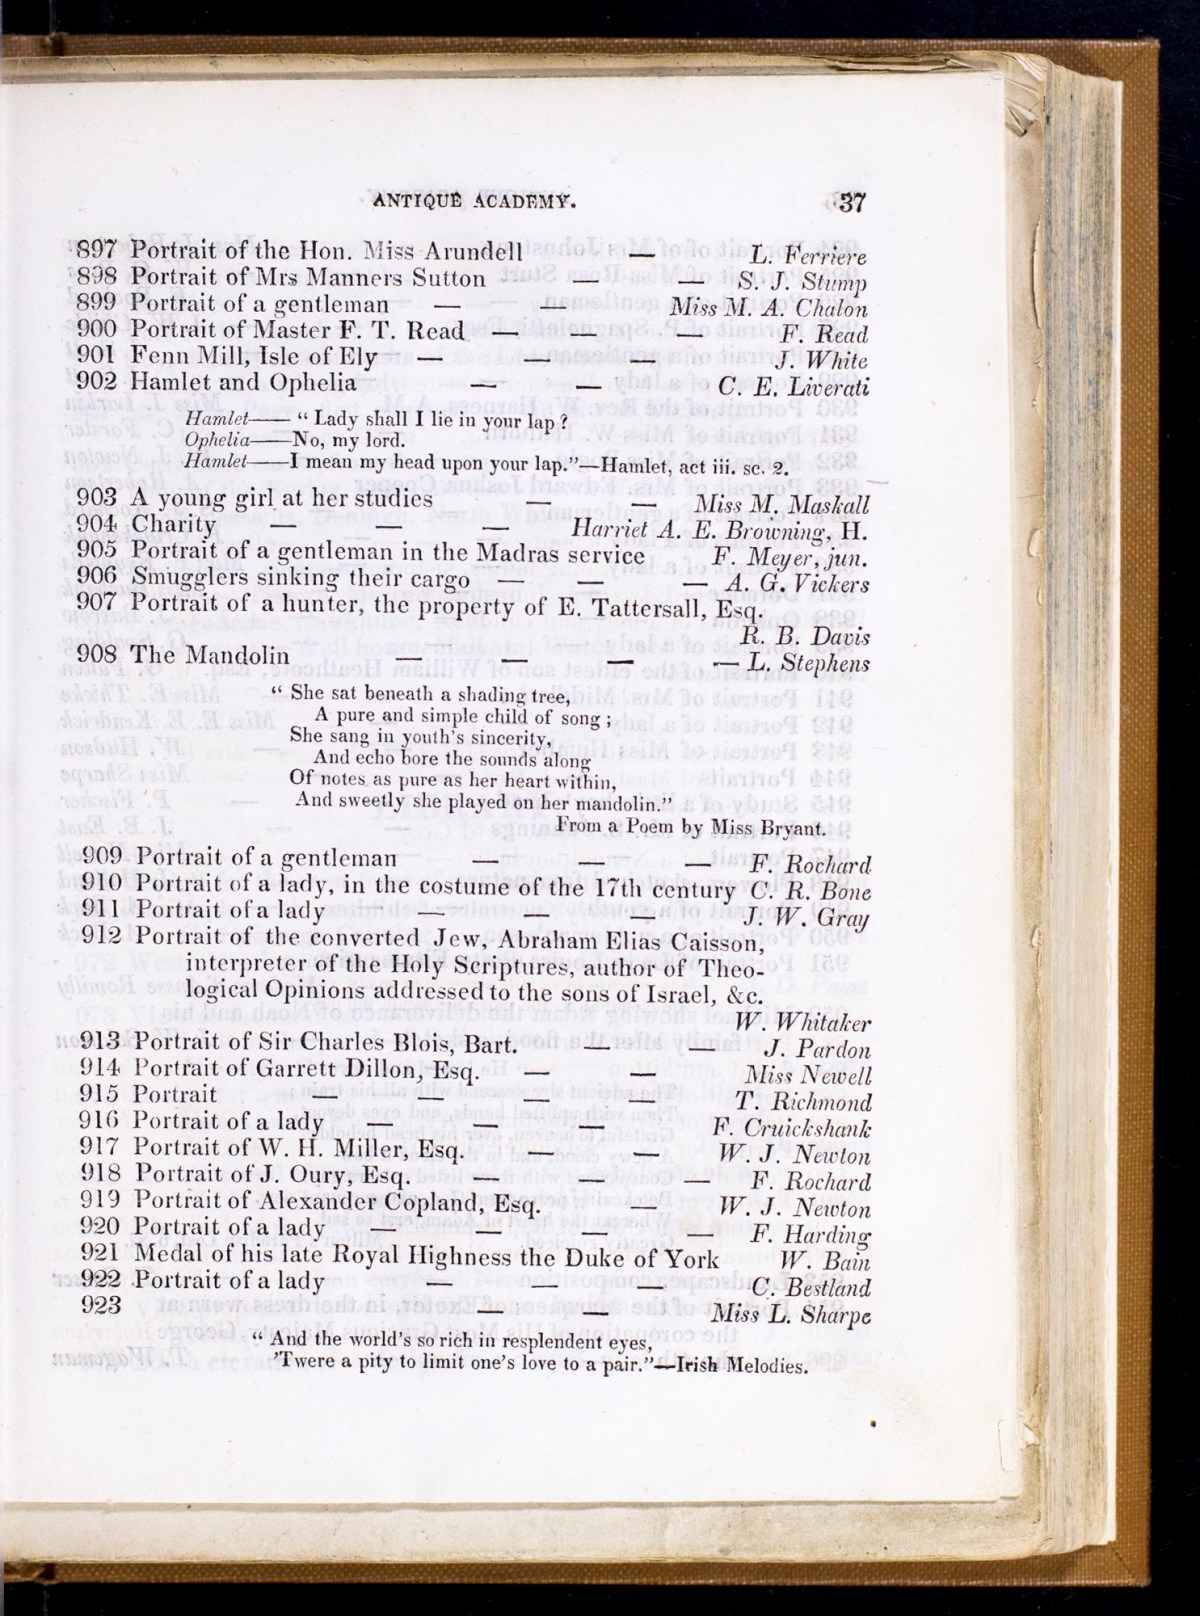 ANTIQUE ACADEMY. 37
897 Portrait of the Hon. Miss Arundell — L. Ferriere
898 Portrait of Mrs Manners Sutton — — S. J. Stump
899 Portrait of a gentleman — — Miss M. A. Chalon
900 Portrait of Master F. T. Read — — — F. Read
901 Fenn Mill, Isle of Ely — — — J. White
902 Hamlet and Ophelia — — C. E. Liverati
Hamlet—— “ Lady shall I lie in your lap ?
Ophelia——No, my lord.
Hamlet——I mean my head upon your lap.”—Hamlet, act iii. sc. 2.
903 A young girl at her studies — — Miss M. Maskall
904 Charity — — — Harriet A. E. Browning, H.
905 Portrait of a gentleman in the Madras service F. Meyer, jun.
906 Smugglers sinking their cargo — — — A. G. Vickers
907 Portrait of a hunter, the property of E. Tattersall, Esq.
R. B. Davis
908 The Mandolin — — — — L. Stephens
“ She sat beneath a shading tree,
A pure and simple child of song ;
She sang in youth's sincerity,
And echo bore the sounds along
Of notes as pure as her heart within,
And sweetly she played on her mandolin.”
From a Poem by Miss Bryant.
909 Portrait of a gentleman — — — F. Rochard
910 Portrait of a lady, in the costume of the 17th century C. R. Bone
911 Portrait of a lady — — — J. W. Gray
912 Portrait of the converted Jew, Abraham Elias Caisson,
interpreter of the Holy Scriptures, author of Theo-
logical Opinions addressed to the sons of Israel, &c.
W. Whitaker
913 Portrait of Sir Charles Blois, Bart. — — J. Pardon
914 Portrait of Garrett Dillon, Esq. — — Miss Newell
915 Portrait — — — — T. Richmond
916 Portrait of a lady — — — F. Cruickshank
917 Portrait of W. H. Miller, Esq. — — W. J. Newton
918 Portrait of J. Oury, Esq. — — — F. Rochard
919 Portrait of Alexander Copland, Esq. — W. J. Newton
920 Portrait of a lady — — — — F. Harding
921 Medal of his late Royal Highness the Duke of York W. Bain
922 Portrait of a lady — — — C. Bestland
923 — — Miss L. Sharpe
“ And the world's so rich in resplendent eyes,
'Twere a pity to limit one's love to a pair.”—Irish Melodies.